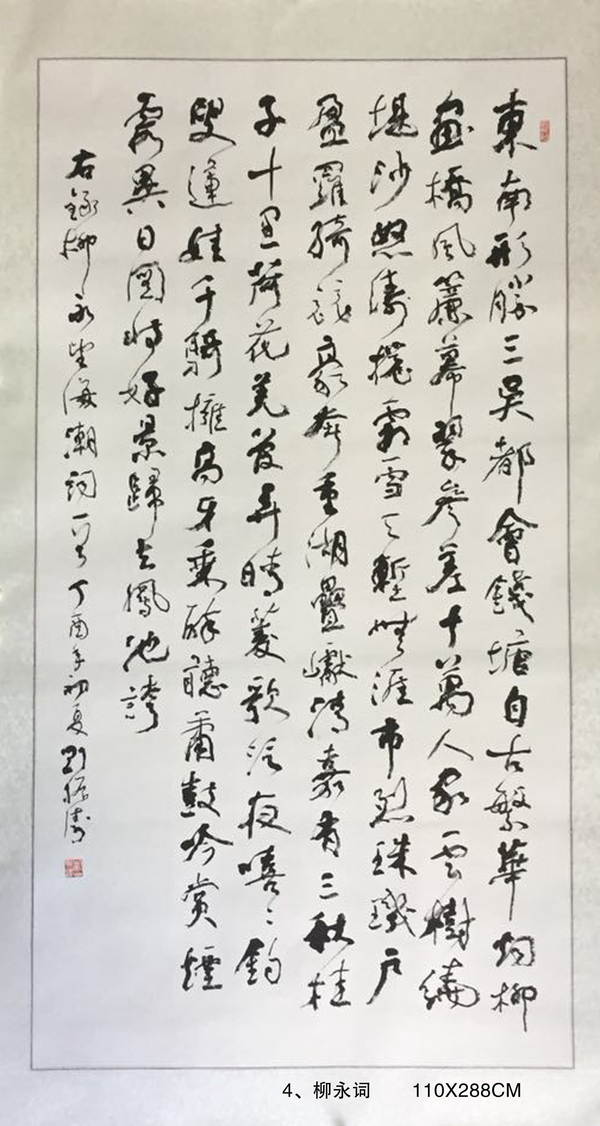 東南形勝三吴都會錢塘自古繁華烟柳
畫橋風簾幕翠參差十萬人家雲樹繞
堤沙怒濤捲霜雪天塹無涯市烈珠璣户
盈羅綺競豪奢重湖疊巘清嘉有三秋桂
子十里荷花羌管弄晴菱歌泛夜嘻〻釣
叟蓮娃千騎擁高牙乘醉聽蕭鼓吟賞煙
霞異日圖將好景歸去鳳池誇
右錄柳永望海潮詞一首丁酉年初夏劉振濤
4、柳永词 110X288CM